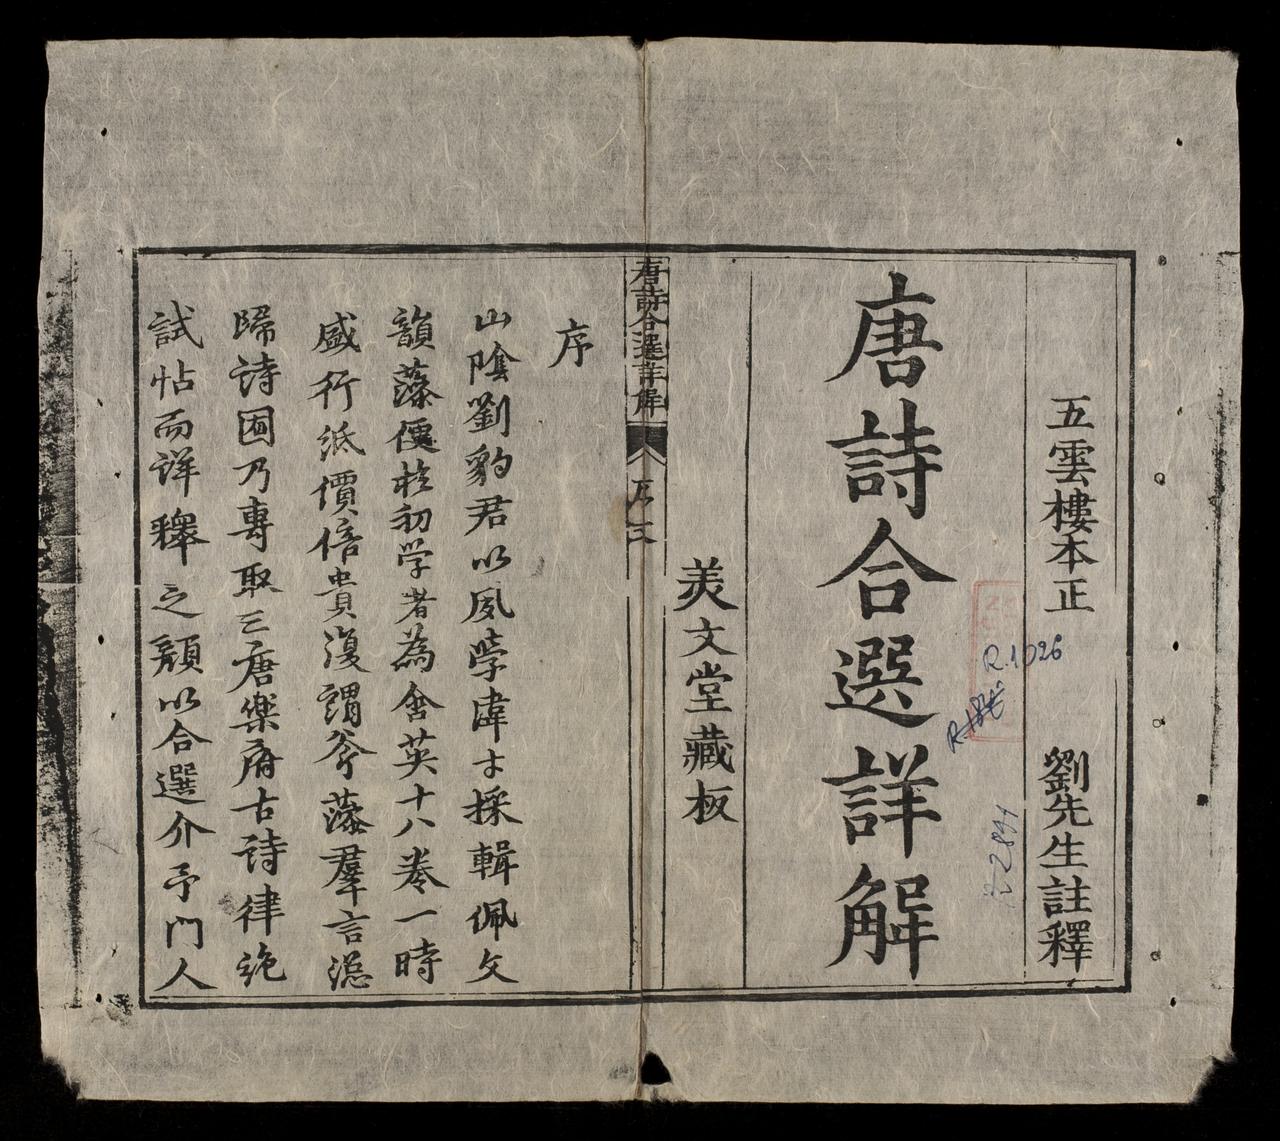 五雲樓本正 劉先生註釋
唐詩合選詳解
羙文堂藏板
唐詩合選詳解
序
山陰劉豹君以夙學偉才採輯佩文
韻藻便於初学者為含英十八卷一時
盛行紙價倍貴復謂芬藻羣言總
歸詩囿乃專取三唐樂府古诗律絶
試帖而详釋之顏以合選介予門人
R.1026
R.2891